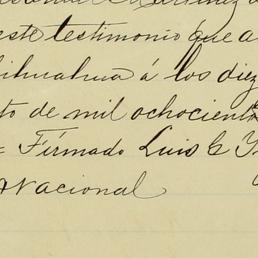 este testimonio que a
hihuahua á los diez
to de mil ochociento
= Firmado Luis G
Nacional